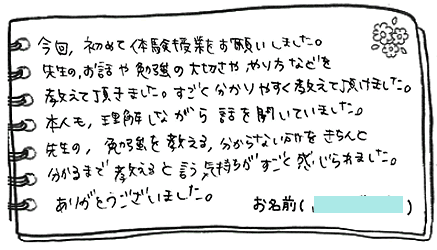 今回, 初めて体験授業をお願いしました。
先生の, お話や勉強の大切さややり方などを
教えて頂きました。すごく分かりやすく教えて頂けました。
本人も, 理解しながら話を聞いていました。
先生の, 勉強を教える, 分からない所をきちんと
分かるまで教えると言う気持ちがすごく感じられました。
ありがとうございました。 お名前( )